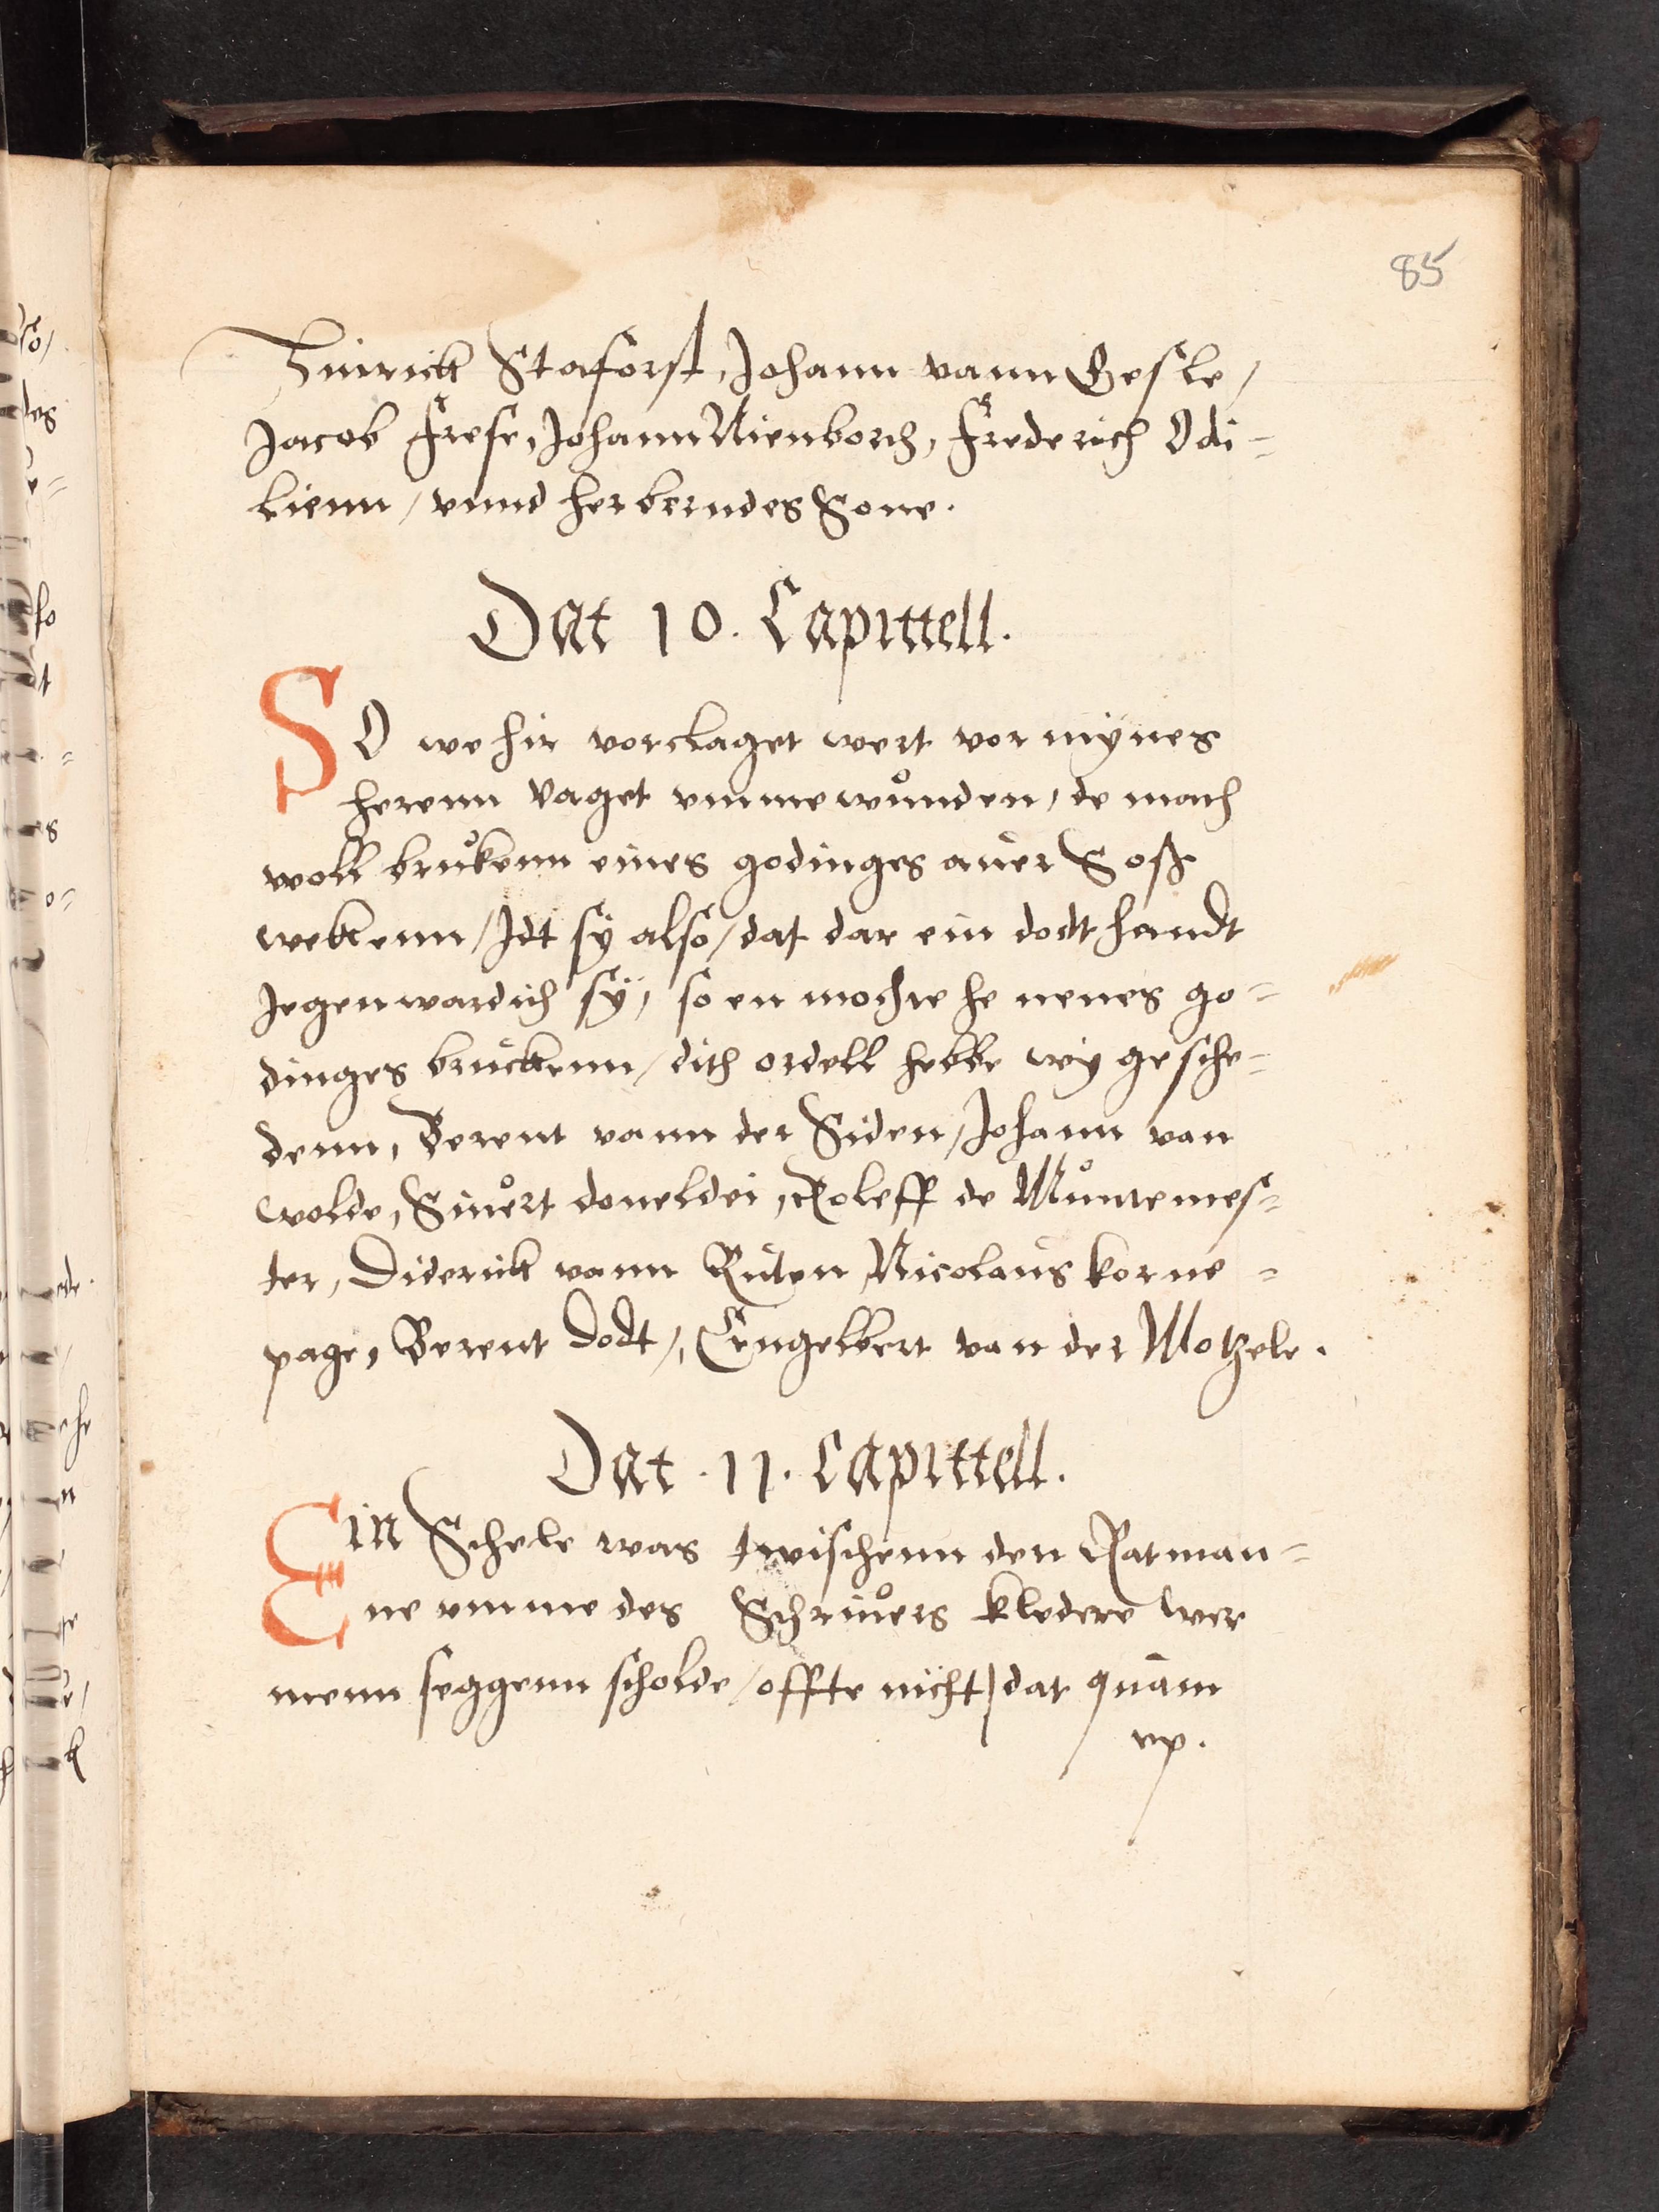 85
Hinrick Staforst, Johann vann Gesle,
Jacob Frese, Johann Nienborch, Frederich Odi=
lienn, vnnd her berndes Sone.
Dat 10. Capittell.
SO we hir vorclaget wert vor mÿnes
herenn vaget vmme wůnden, de mach
woll brůkenn eines godinges auer Soß
wekenn, Idt sÿ also, dat dar ein dodt handt
Jegenwardich sÿ, so en mochte he nenes go=
dinges bruckenn, dith ordell hebbe wy gesche=
denn, Berent vann der Siden, Johann van
wolde, Siuert doneldei, Roleff de Můntemes=
ter, Diderick vann Ruten, Nicolaus korne=
page, Berent dodt, Engelbert van der Motzele.
Dat .11. Capittell.
Ein Schele was twischenn den Ratman=
ne vmme des Schriuers kledere wer
menn seggenn scholde, offte nicht, dat quam
vp.